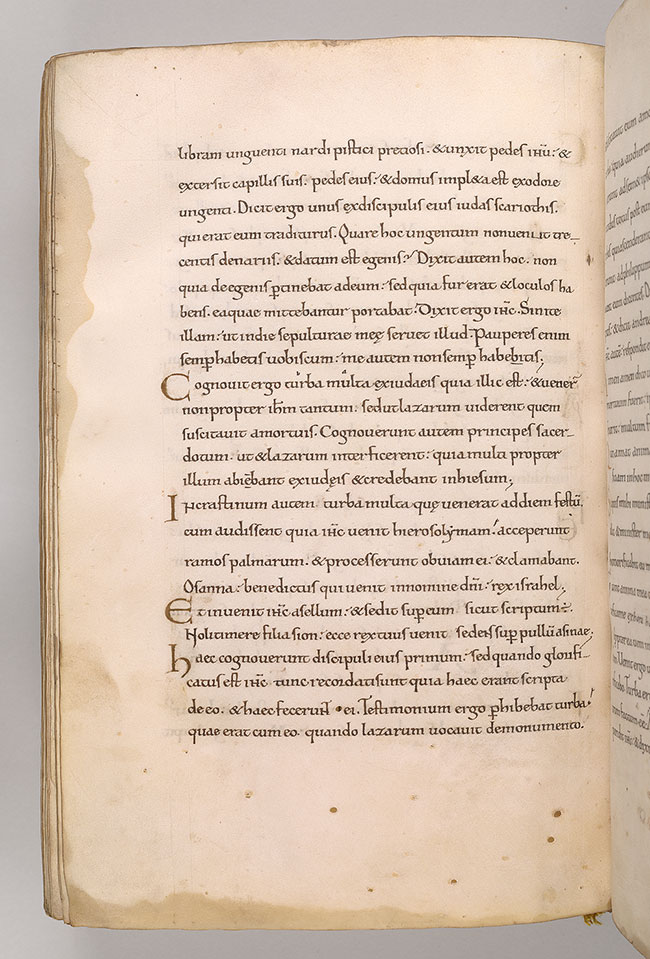 libram unguenti nardi pistici preciosi. & unxit pedes ihu: &
extersit capillis suis. pedes eius: & domus impl&a est exodore
ungenti. Dicit ergo unus exdiscipulis eius iudas scariothis.
qui erat eum traditurus. Quare hoc ungentum nonveniit tre_
centis denariis: & datum est egenis? Dixit autem hoc. non
quia de egenis ptinebat adeum: sed quia fur erat & loculos ha
bens. ea quae mittebantur portabat. Dixit ergo ihc. Sinite
illam: ut indie sepulturae meę servet illud. Pauperes enim
semp habetis vobiscum: me autem non semp habebitis;
Cognovit ergo turba multa exiudaeis quia illic est: & vener
non propter ihm tantum. sed ut lazarum viderent quem
suscitavit amortuis. Cognoverunt autem principes sacer_
dotum. ut & lazarum interficerent: quia multi propter
illum abiebant exiudęis & credebant inhiesum;
Incrastinum autem. turba multa quę venerat addiem festū.
cum audissent quia ihc venit hierosolymam. acceperunt
ramos palmarum. & processerunt obviam ei. & clamabant.
Osanna. benedictus qui venit innomine dni. rex israhel;
Et invenit ihc asellum. & sedit sup eum sicut scriptum ÷.
Noli timere filia sion. ecce rex tuus venit sedens sup pullū asinae;
haec cognoverunt discipuli eius primum. sed quando glorifi_
catus est ihc tunc recordati sunt quia haec erant scripta
de eo. & haec fecerunt ei. Testimonium ergo phibebat turba.
quae erat cum eo. quando lazarum vocavit demonumento.